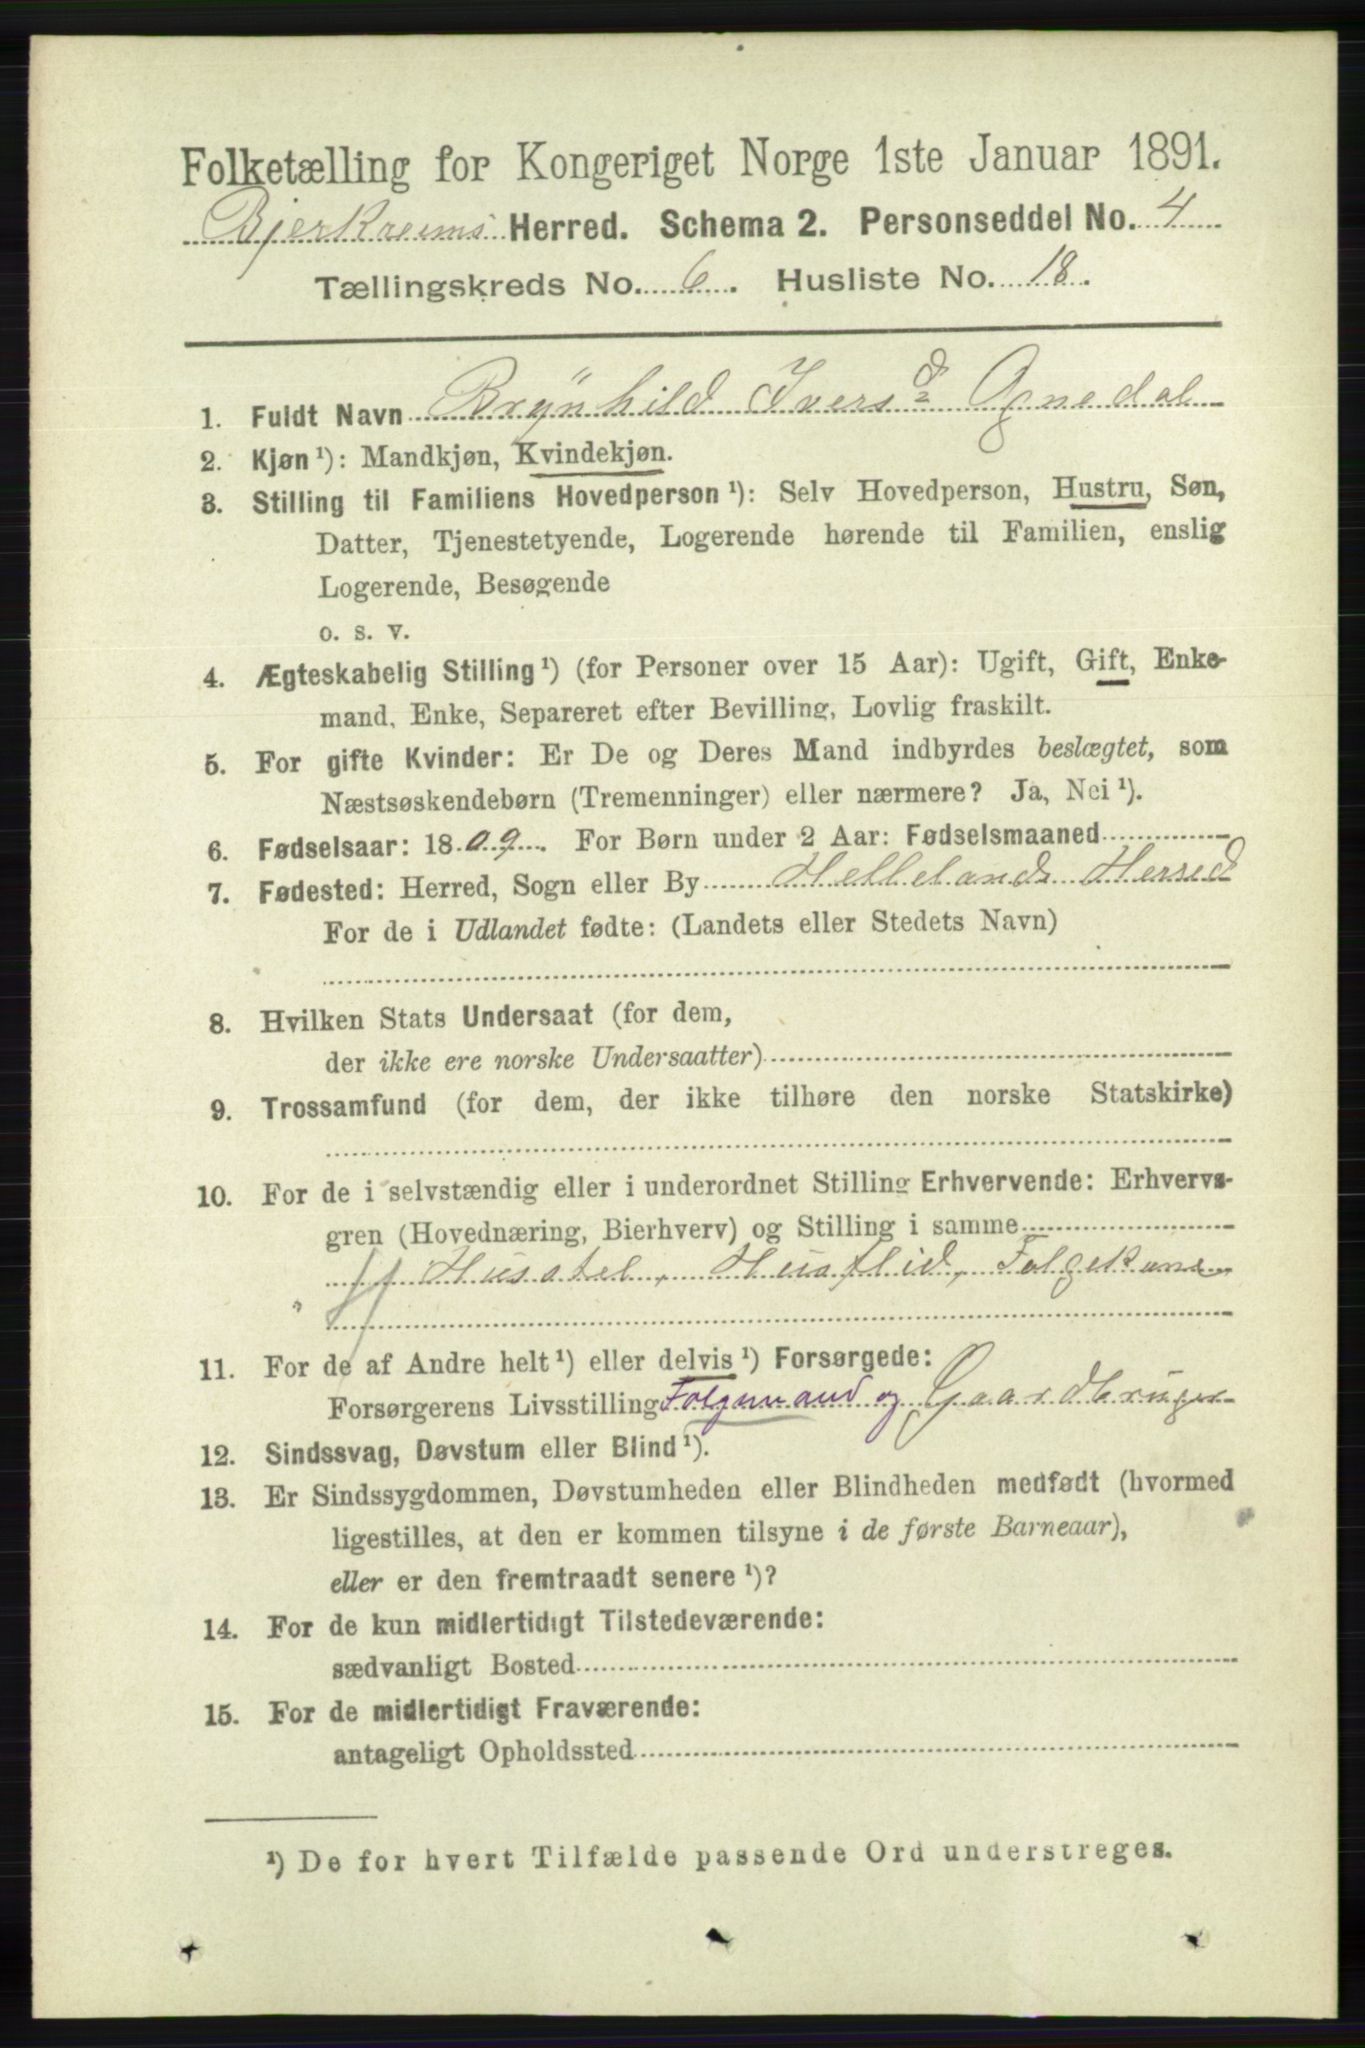 Folketælling for Kongeriget Norge 1ste Januar 1891.
Bjerkreims Herred. Schema 2. Personseddel No. 4
Tællingskreds No. 6. Husliste No. 18.
1. Fuldt Navn Brÿnhild Iversd Ognedal
2. Kjøn ¹): Mandkjøn, Kvindekjøn.
3. Stilling til Familiens Hovedperson ¹): Selv Hovedperson, Hustru, Søn,
Datter, Tjenestetyende, Logerende hørende til Familien, enslig
Logerende, Besøgende
o. s. v.
4. Ægteskabelig Stilling ¹) (for Personer over 15 Aar): Ugift, Gift, Enke-
mand, Enke, Separeret efter Bevilling, Lovlig fraskilt.
5. For gifte Kvinder: Er De og Deres Mand indbyrdes beslægtet, som
Næstsøskendebørn (Tremenninger) eller nærmere? Ja, Nei ¹).
6. Fødselsaar: 1809. For Børn under 2 Aar: Fødselsmaaned
7. Fødested: Herred, Sogn eller By Hellelands Herred
For de i Udlandet fødte: (Landets eller Stedets Navn)
8. Hvilken Stats Undersaat (for dem,
der ikke ere norske Undersaatter)
9. Trossamfund (for dem, der ikke tilhøre den norske Statskirke)
10. For de i selvstændig eller i underordnet Stilling Erhvervende: Erhvervs-
gren (Hovednæring, Bierhverv) og Stilling i samme
Husstel, Husflid, Folgekone
11. For de af Andre helt ¹) eller delvis ¹) Forsørgede:
Forsørgerens Livsstilling Folgemand og Gaardbruger
12. Sindssvag, Døvstum eller Blind ¹).
13. Er Sindssygdommen, Døvstumheden eller Blindheden medfødt (hvormed
ligestilles, at den er kommen tilsyne i de første Barneaar),
eller er den fremtraadt senere ¹)?
14. For de kun midlertidigt Tilstedeværende:
sædvanligt Bosted
15. For de midlertidigt Fraværende:
antageligt Opholdssted
¹) De for hvert Tilfælde passende Ord understreges.